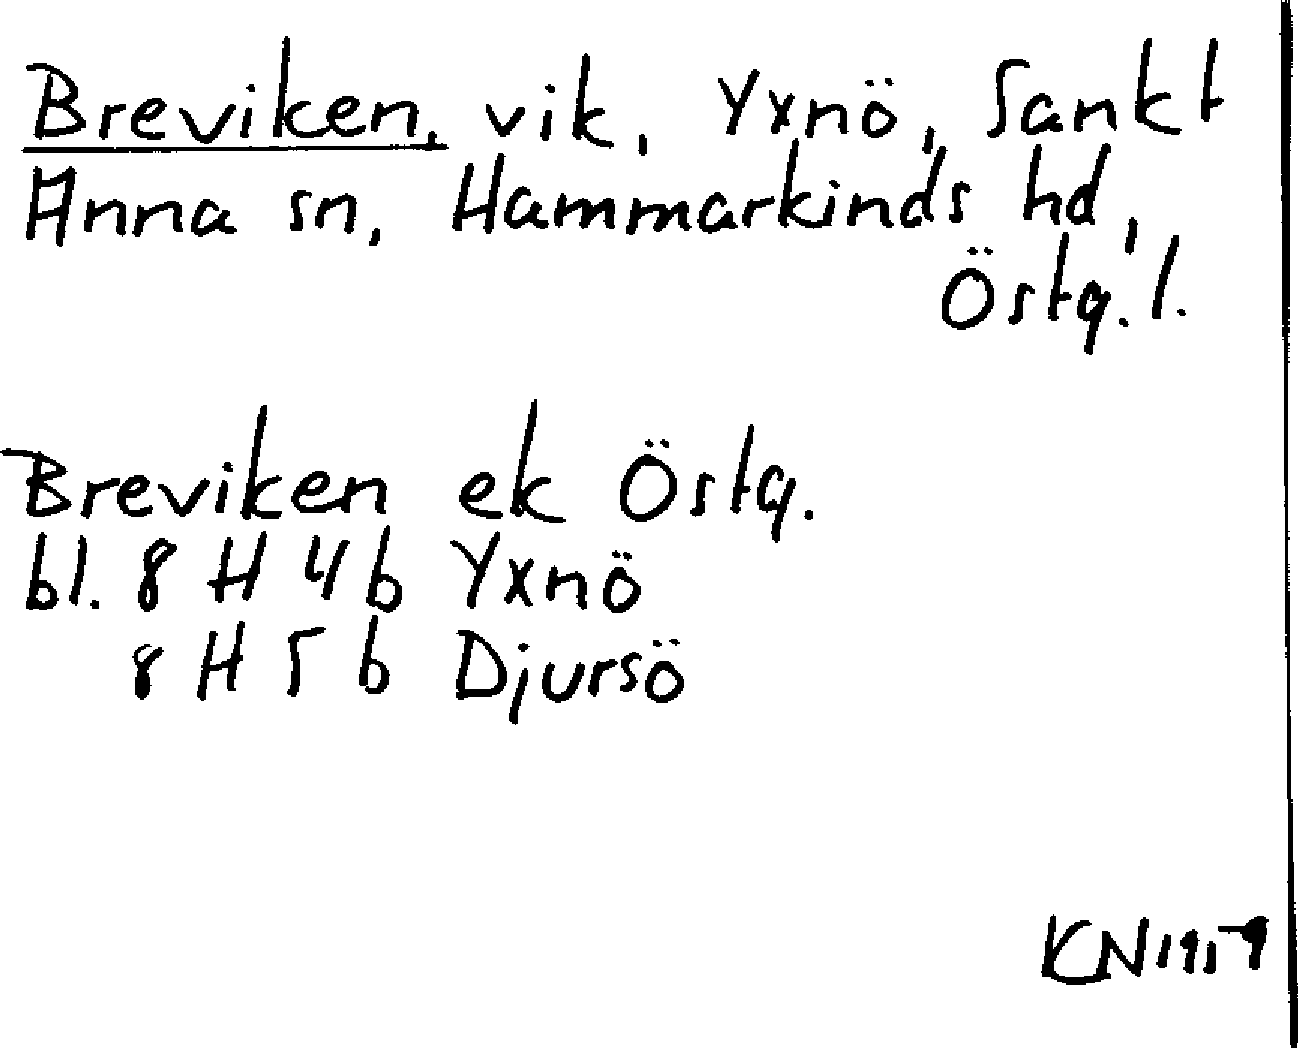 Breviken, vik, Yxnö, Sankt
Anna sn, Hammarkinds hd,
Östg. l.
Breviken ek Östg.
bl. 8 H 4 b Yxnö
8 H 5 b Djursö